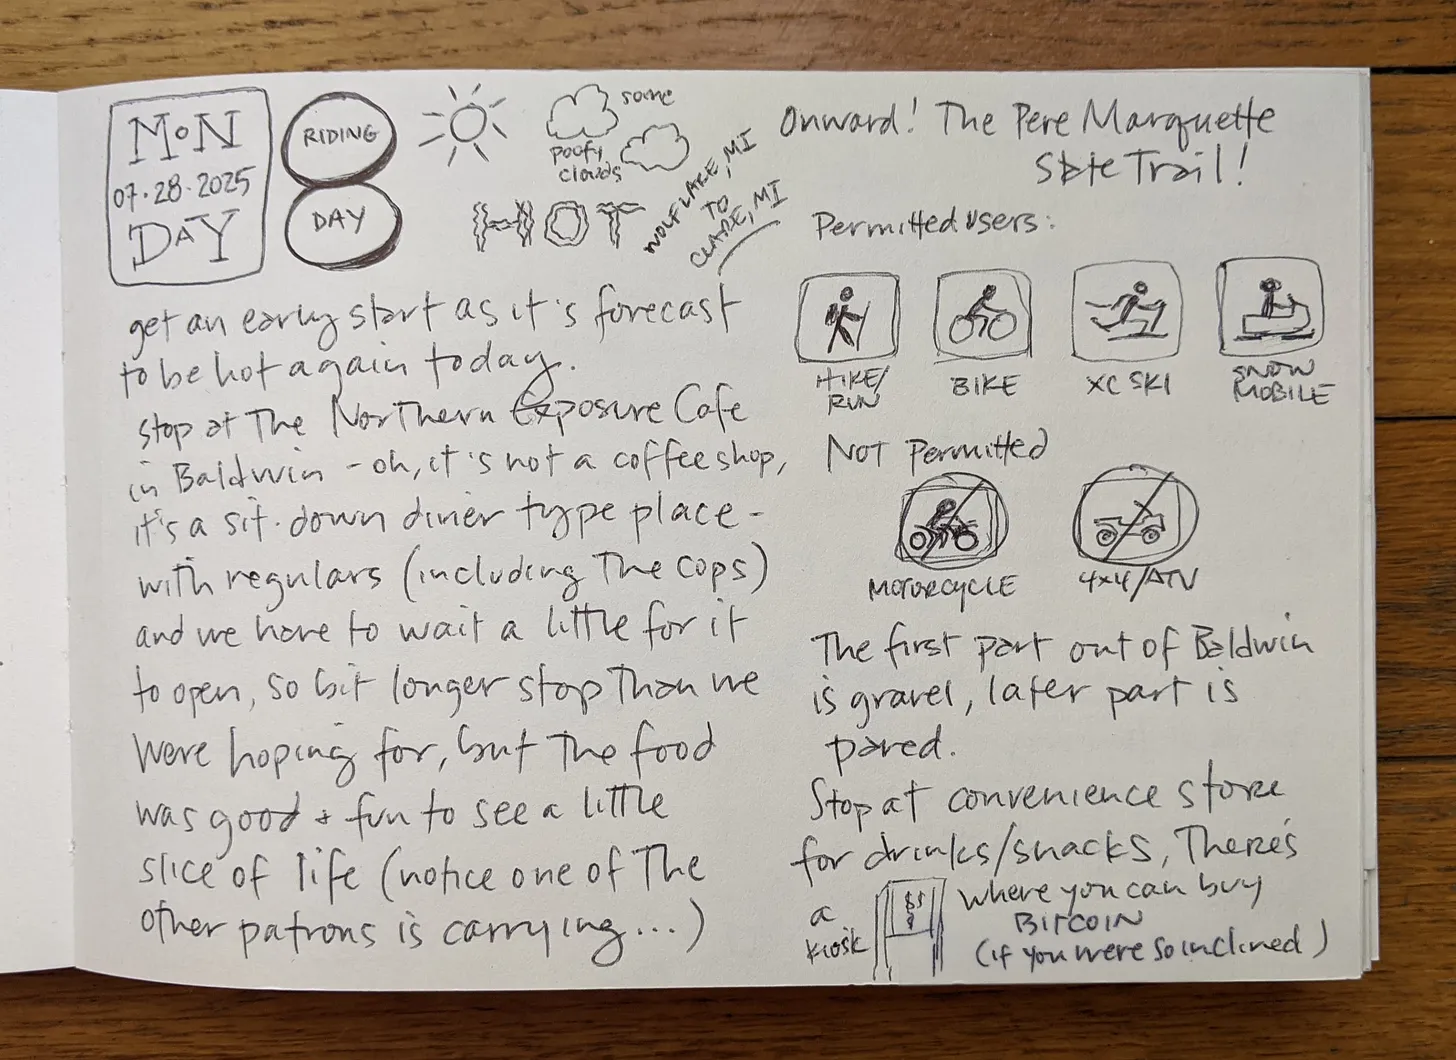 MON
07·28·2025
DAY
RIDING
DAY
some
poofy
clouds
HOT
WOLF LAKE, MI
TO
CLARE, MI
get an early start as it's forecast
to be hot again today.
stop at The Northern Exposure Cafe
in Baldwin - oh, it's not a coffee shop,
it's a sit-down diner type place -
with regulars (including The cops)
and we have to wait a little for it
to open, so bit longer stop Than we
were hoping for, but The food
was good + fun to see a little
slice of life (notice one of The
other patrons is carrying...)
Onward! The Pere Marquette
State Trail!
Permitted users:
HIKE/
RUN
BIKE
XC SKI
SNOW
MOBILE
NOT Permitted
MOTORCYCLE
4x4/ATV
The first part out of Baldwin
is gravel, later part is
paved.
Stop at convenience store
for drinks/snacks, There's
a
kiosk
$$
$
where you can buy
BITCOIN
(if you were so inclined)